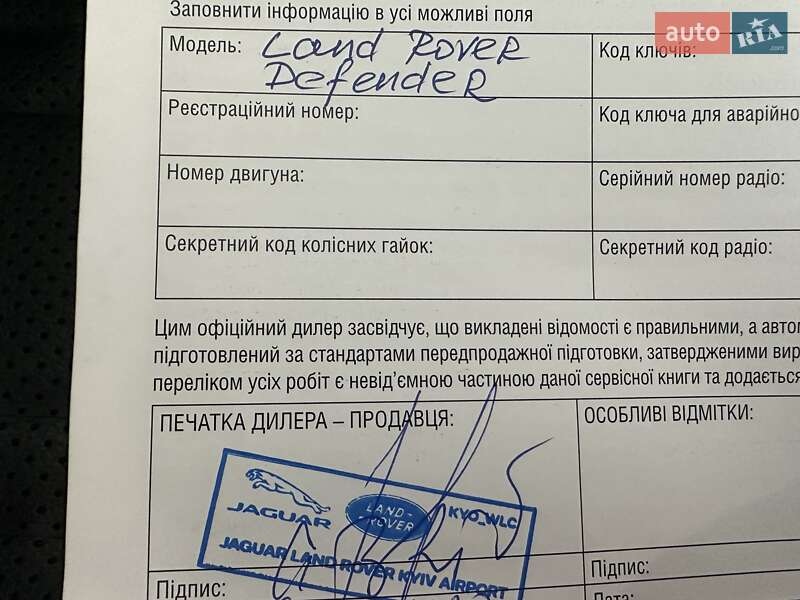 Заповнити інформацію в усі можливі поля
auto RIA .com
Модель: Land Rover
Defender
Код ключів:
Реєстраційний номер:
Код ключа для аварійно
Номер двигуна:
Серійний номер радіо:
Секретний код колісних гайок:
Секретний код радіо:
Цим офіційний дилер засвідчує, що викладені відомості є правильними, а авто
підготовлений за стандартами передпродажної підготовки, затвердженими вир
переліком усіх робіт є невід’ємною частиною даної сервісної книги та додається
ПЕЧАТКА ДИЛЕРА – ПРОДАВЦЯ:
ОСОБЛИВІ ВІДМІТКИ:
JAGUAR
LAND-
ROVER
KYO_WLC
JAGUAR LAND ROVER KYIV AIRPORT
Підпис:
Підпис:
Дата: